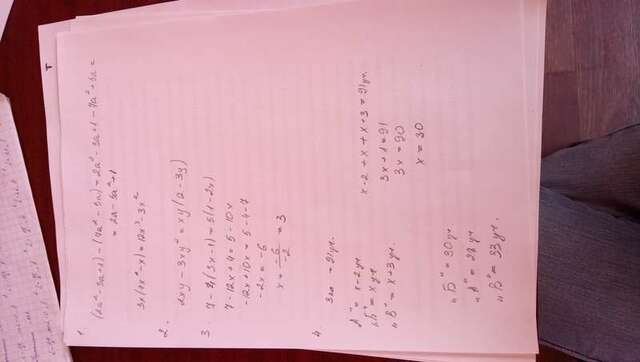 1.
(2a² - 3a + 1) - (7a² - 5a) = 2a² - 3a + 1 - 7a² + 5a =
= 2a - 5a² + 1
3x(4x² - x) = 12x³ - 3x²
2.
2xy - 3xy² = xy(2 - 3y)
3
7 - 4(3x - 1) = 5(1 - 2x)
7 - 12x + 4 = 5 - 10x
-12x + 10x = 5 - 4 - 7
-2x = -6
x = -6/-2 = 3
4.
= 91уч.
„А" = x - 2уч
„Б" = x уч
„В" = x + 3уч.
x - 2 + x + x + 3 = 91уч
3x + 1 = 91
3x = 90
x = 30
„Б" = 30уч
„А" = 28уч
„В" = 33уч.